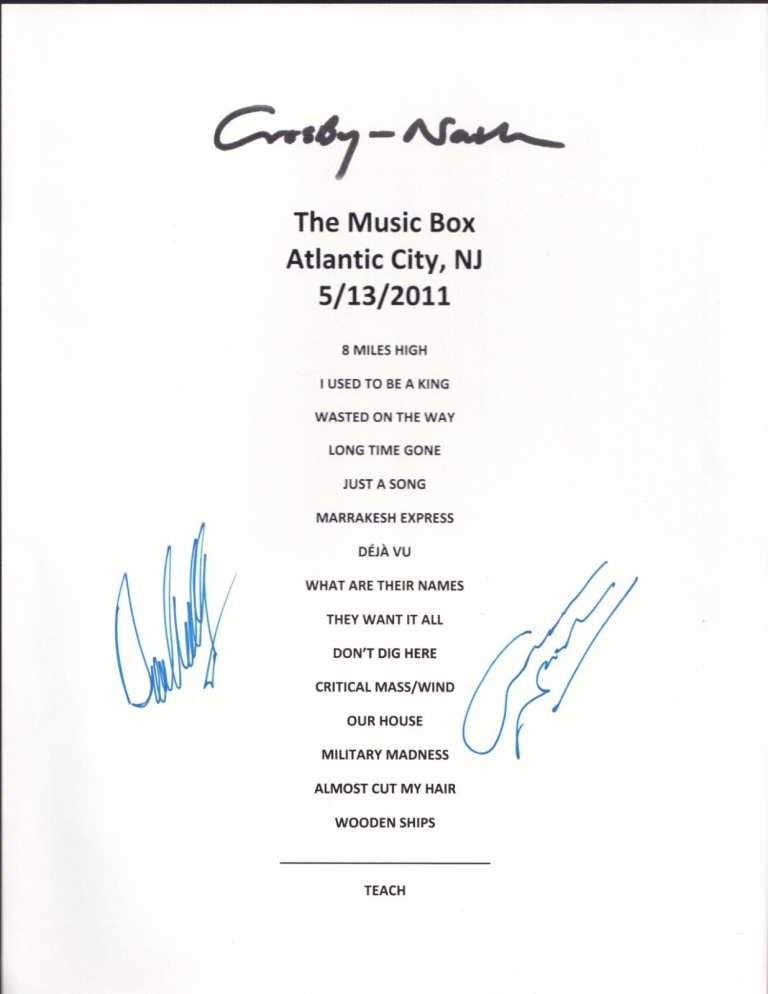 Crosby-Nash
The Music Box
Atlantic City, NJ
5/13/2011
8 MILES HIGH
I USED TO BE A KING
WASTED ON THE WAY
LONG TIME GONE
JUST A SONG
MARRAKESH EXPRESS
DÉJÀ VU
WHAT ARE THEIR NAMES
THEY WANT IT ALL
DON'T DIG HERE
CRITICAL MASS/WIND
OUR HOUSE
MILITARY MADNESS
ALMOST CUT MY HAIR
WOODEN SHIPS
TEACH